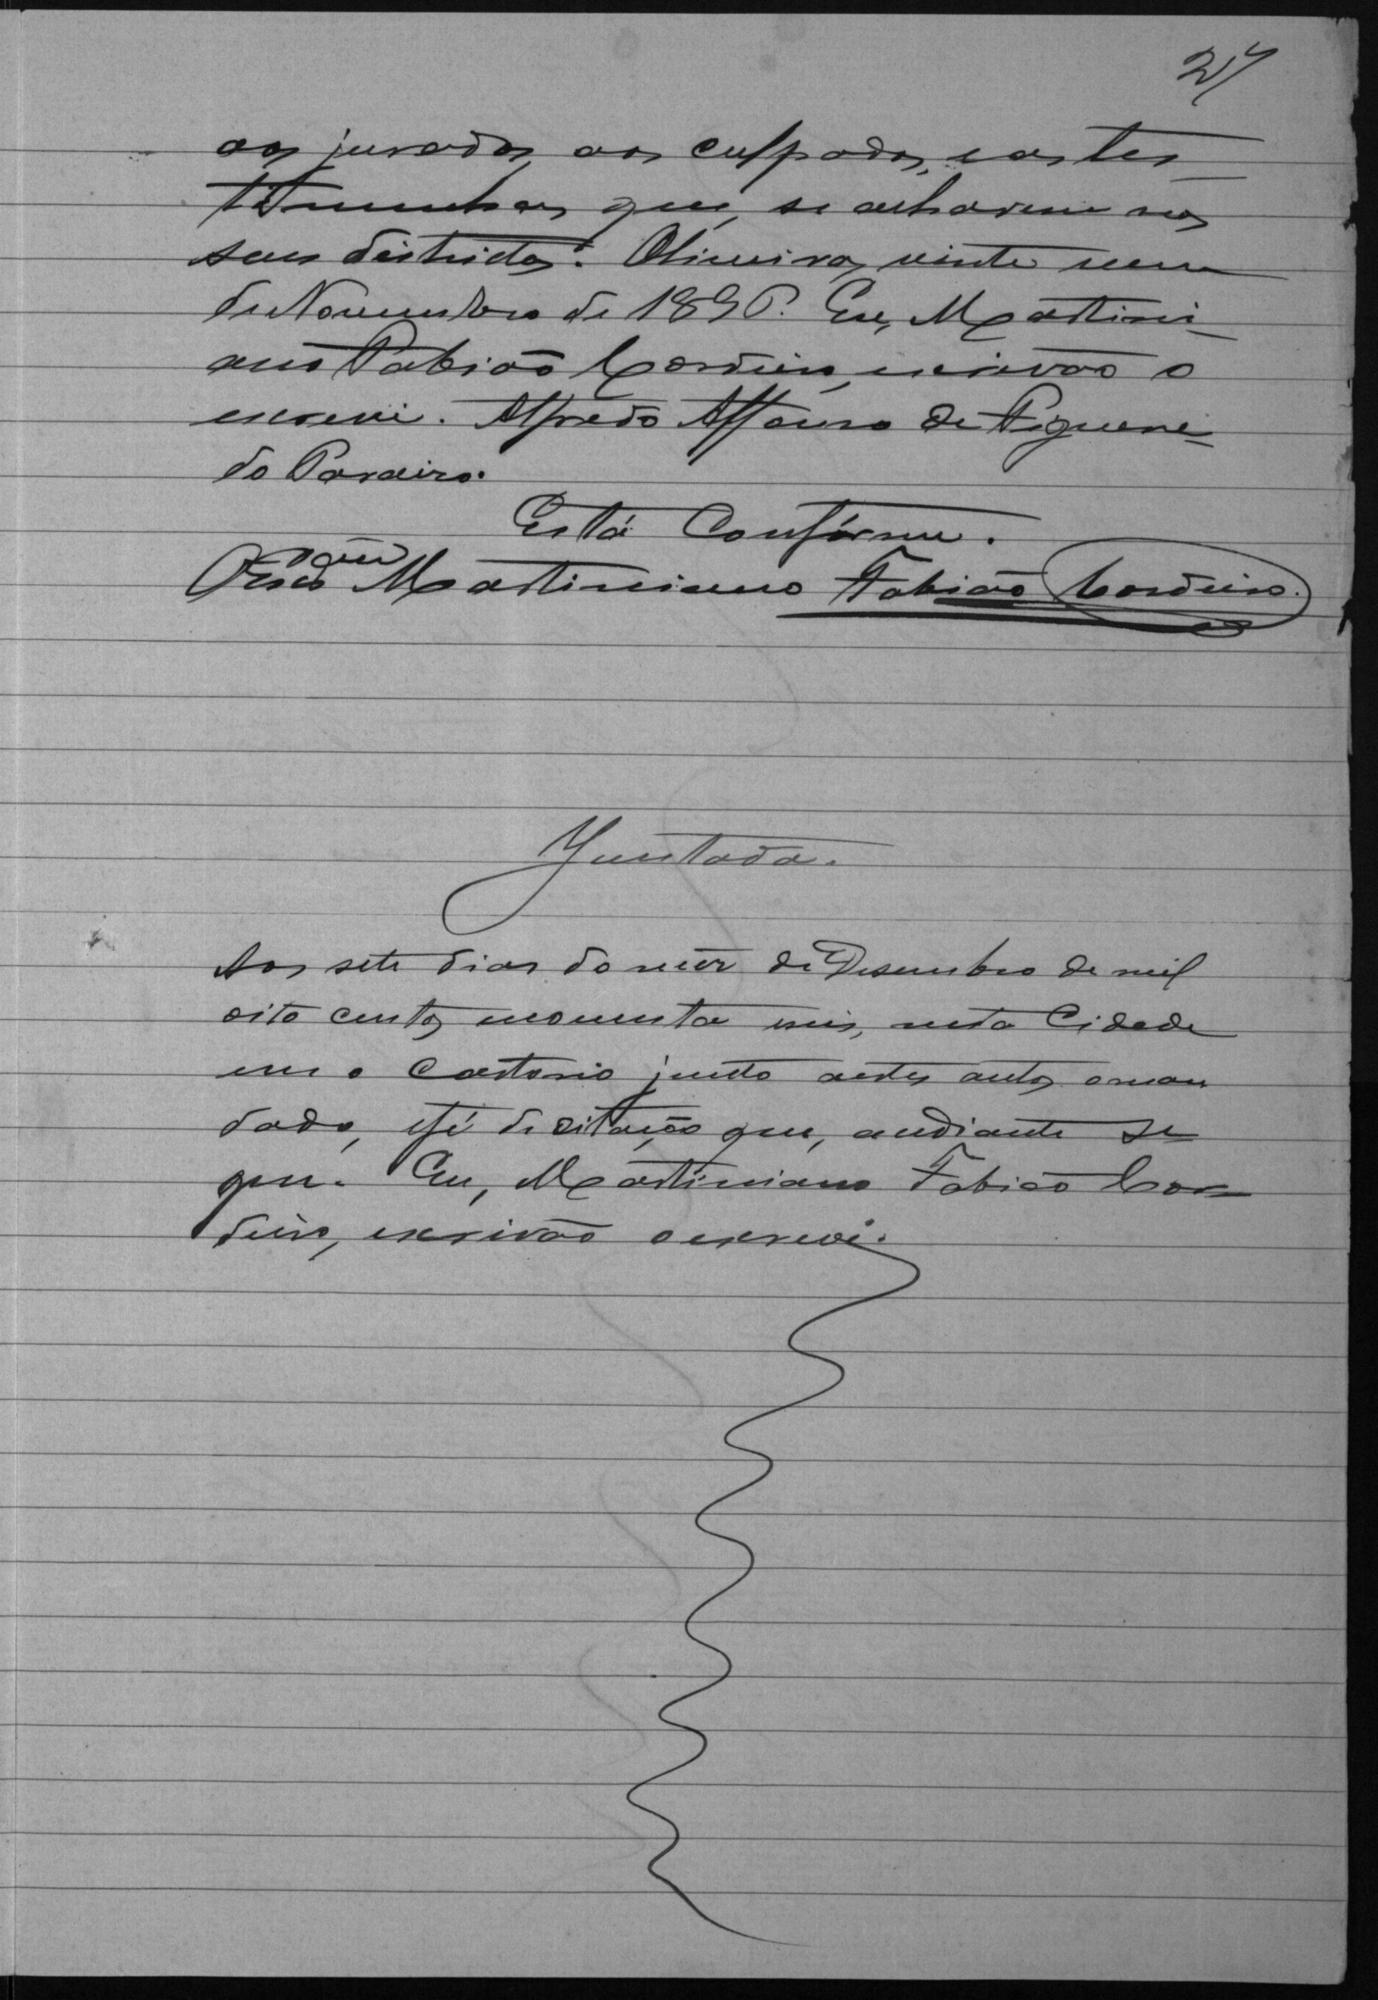 27
aos jurados, aos culpados, e as tes-
timunhas que, se acharem nos
seus districtos. Oliveira, vinte um
de Novembro de 1896. Eu, Martini-
ano Fabião Cordeiro, escrivão o
escrevi. Alfredo Affonso de Figueire-
do Paraizo.
Está Confórme.
O Escrivão Martiniano Fabião Cordeiro.
Juntada.
Aos sete dias do mez de Desembro de mil
oito centos noventa seis, nesta Cidade
em o Cartorio junto a estes autos o man
dado, e fé de citação que, andiante se
gue. Eu, Martiniano Fabião Cor-
deiro, escrivão o escrevi.